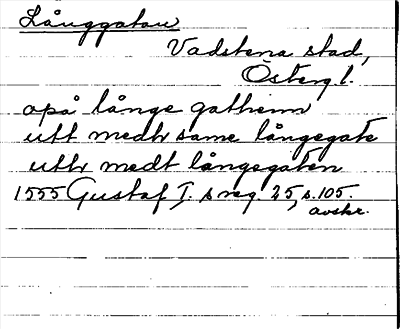 Långgatan
Vadstena stad,
Österg l.
opå långe gathenn
utt medh same långegate
uthr medt långegaten
1555 Gustaf I. s reg. 25, s. 105.
avskr.